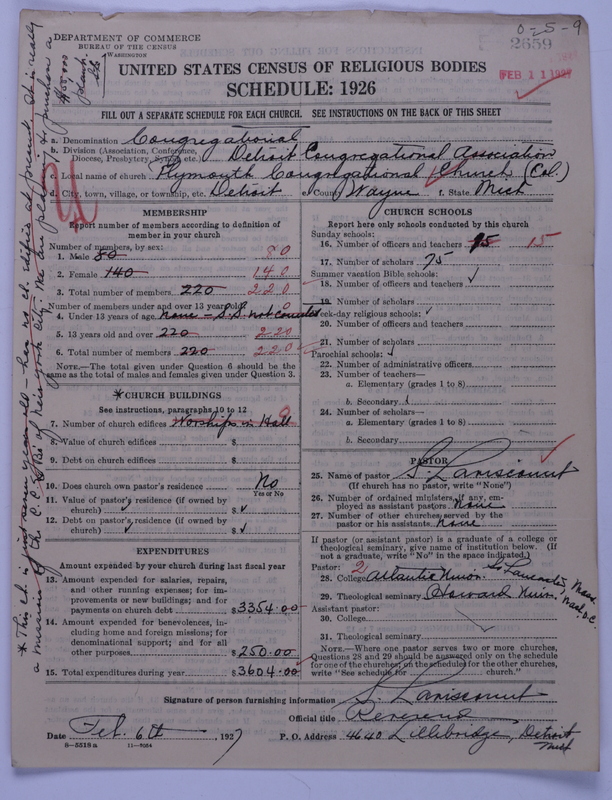 0-5-9
DEPARTMENT OF COMMERCE
BUREAU OF THE CENSUS
WASHINGTON
2659
FEB 11 1927
UNITED STATES CENSUS OF RELIGIOUS BODIES
SCHEDULE: 1926
FILL OUT A SEPARATE SCHEDULE FOR EACH CHURCH. SEE INSTRUCTIONS ON THE BACK OF THIS SHEET
a. Denomination Congregational
b. Division (Association, Conference, Diocese, Presbytery, Synod, etc.) Detroit Congregational Association
c. Local name of church Plymouth Congregational Church (Col.)
d. City, town, village, or township, etc. Detroit e. County Wayne f. State Mich
MEMBERSHIP
Report number of members according to definition of member in your church
Number of members, by sex:
1. Male 80 80
2. Female 140 140
3. Total number of members 220 220
Number of members under and over 13 years old:
4. Under 13 years of age none - S.S. not counted
5. 13 years old and over 220 220
6. Total number of members 220 220
NOTE.—The total given under Question 6 should be the same as the total of males and females given under Question 3.
*CHURCH BUILDINGS
See instructions, paragraphs 10 to 12
7. Number of church edifices Worships in Hall
8. Value of church edifices $
9. Debt on church edifices $
10. Does church own pastor's residence No
Yes or No
11. Value of pastor's residence (if owned by church) $
12. Debt on pastor's residence (if owned by church) $
EXPENDITURES
Amount expended by your church during last fiscal year
13. Amount expended for salaries, repairs, and other running expenses; for improvements or new buildings; and for payments on church debt $3354.00
14. Amount expended for benevolences, including home and foreign missions; for denominational support; and for all other purposes $250.00
15. Total expenditures during year $3604.00
CHURCH SCHOOLS
Report here only schools conducted by this church
Sunday schools:
16. Number of officers and teachers 15 15
17. Number of scholars 75
Summer vacation Bible schools:
18. Number of officers and teachers
19. Number of scholars
Week-day religious schools:
20. Number of officers and teachers
21. Number of scholars
Parochial schools:
22. Number of administrative officers
23. Number of teachers—
a. Elementary (grades 1 to 8)
b. Secondary
24. Number of scholars—
a. Elementary (grades 1 to 8)
b. Secondary
PASTOR
25. Name of pastor S. Laviscount
(If church has no pastor, write "None")
26. Number of ordained ministers, if any, employed as assistant pastors None
27. Number of other churches served by the pastor or his assistants None
If pastor (or assistant pastor) is a graduate of a college or theological seminary, give name of institution below. (If not a graduate, write "No" in the space indicated.)
Pastor: 2
28. College Atlantic Union. So Lancaster Mass.
29. Theological seminary Howard Univ. Wash. D.C.
Assistant pastor:
30. College
31. Theological seminary
NOTE.—Where one pastor serves two or more churches, Questions 28 and 29 should be answered only on the schedule for one of the churches; on the schedules for the other churches, write "See schedule for church."
Signature of person furnishing information S. Laviscount
Official title Reverend
Date Feb. 6th, 1927 P. O. Address 4640 Lillibridge, Detroit Mich
8-5518 a 11-9054
* This ch. is just seven years old - has no ch. edifice at present. It is really
a mission of the C.C.B.S. of New York City. We are planning to purchase a
$55,000